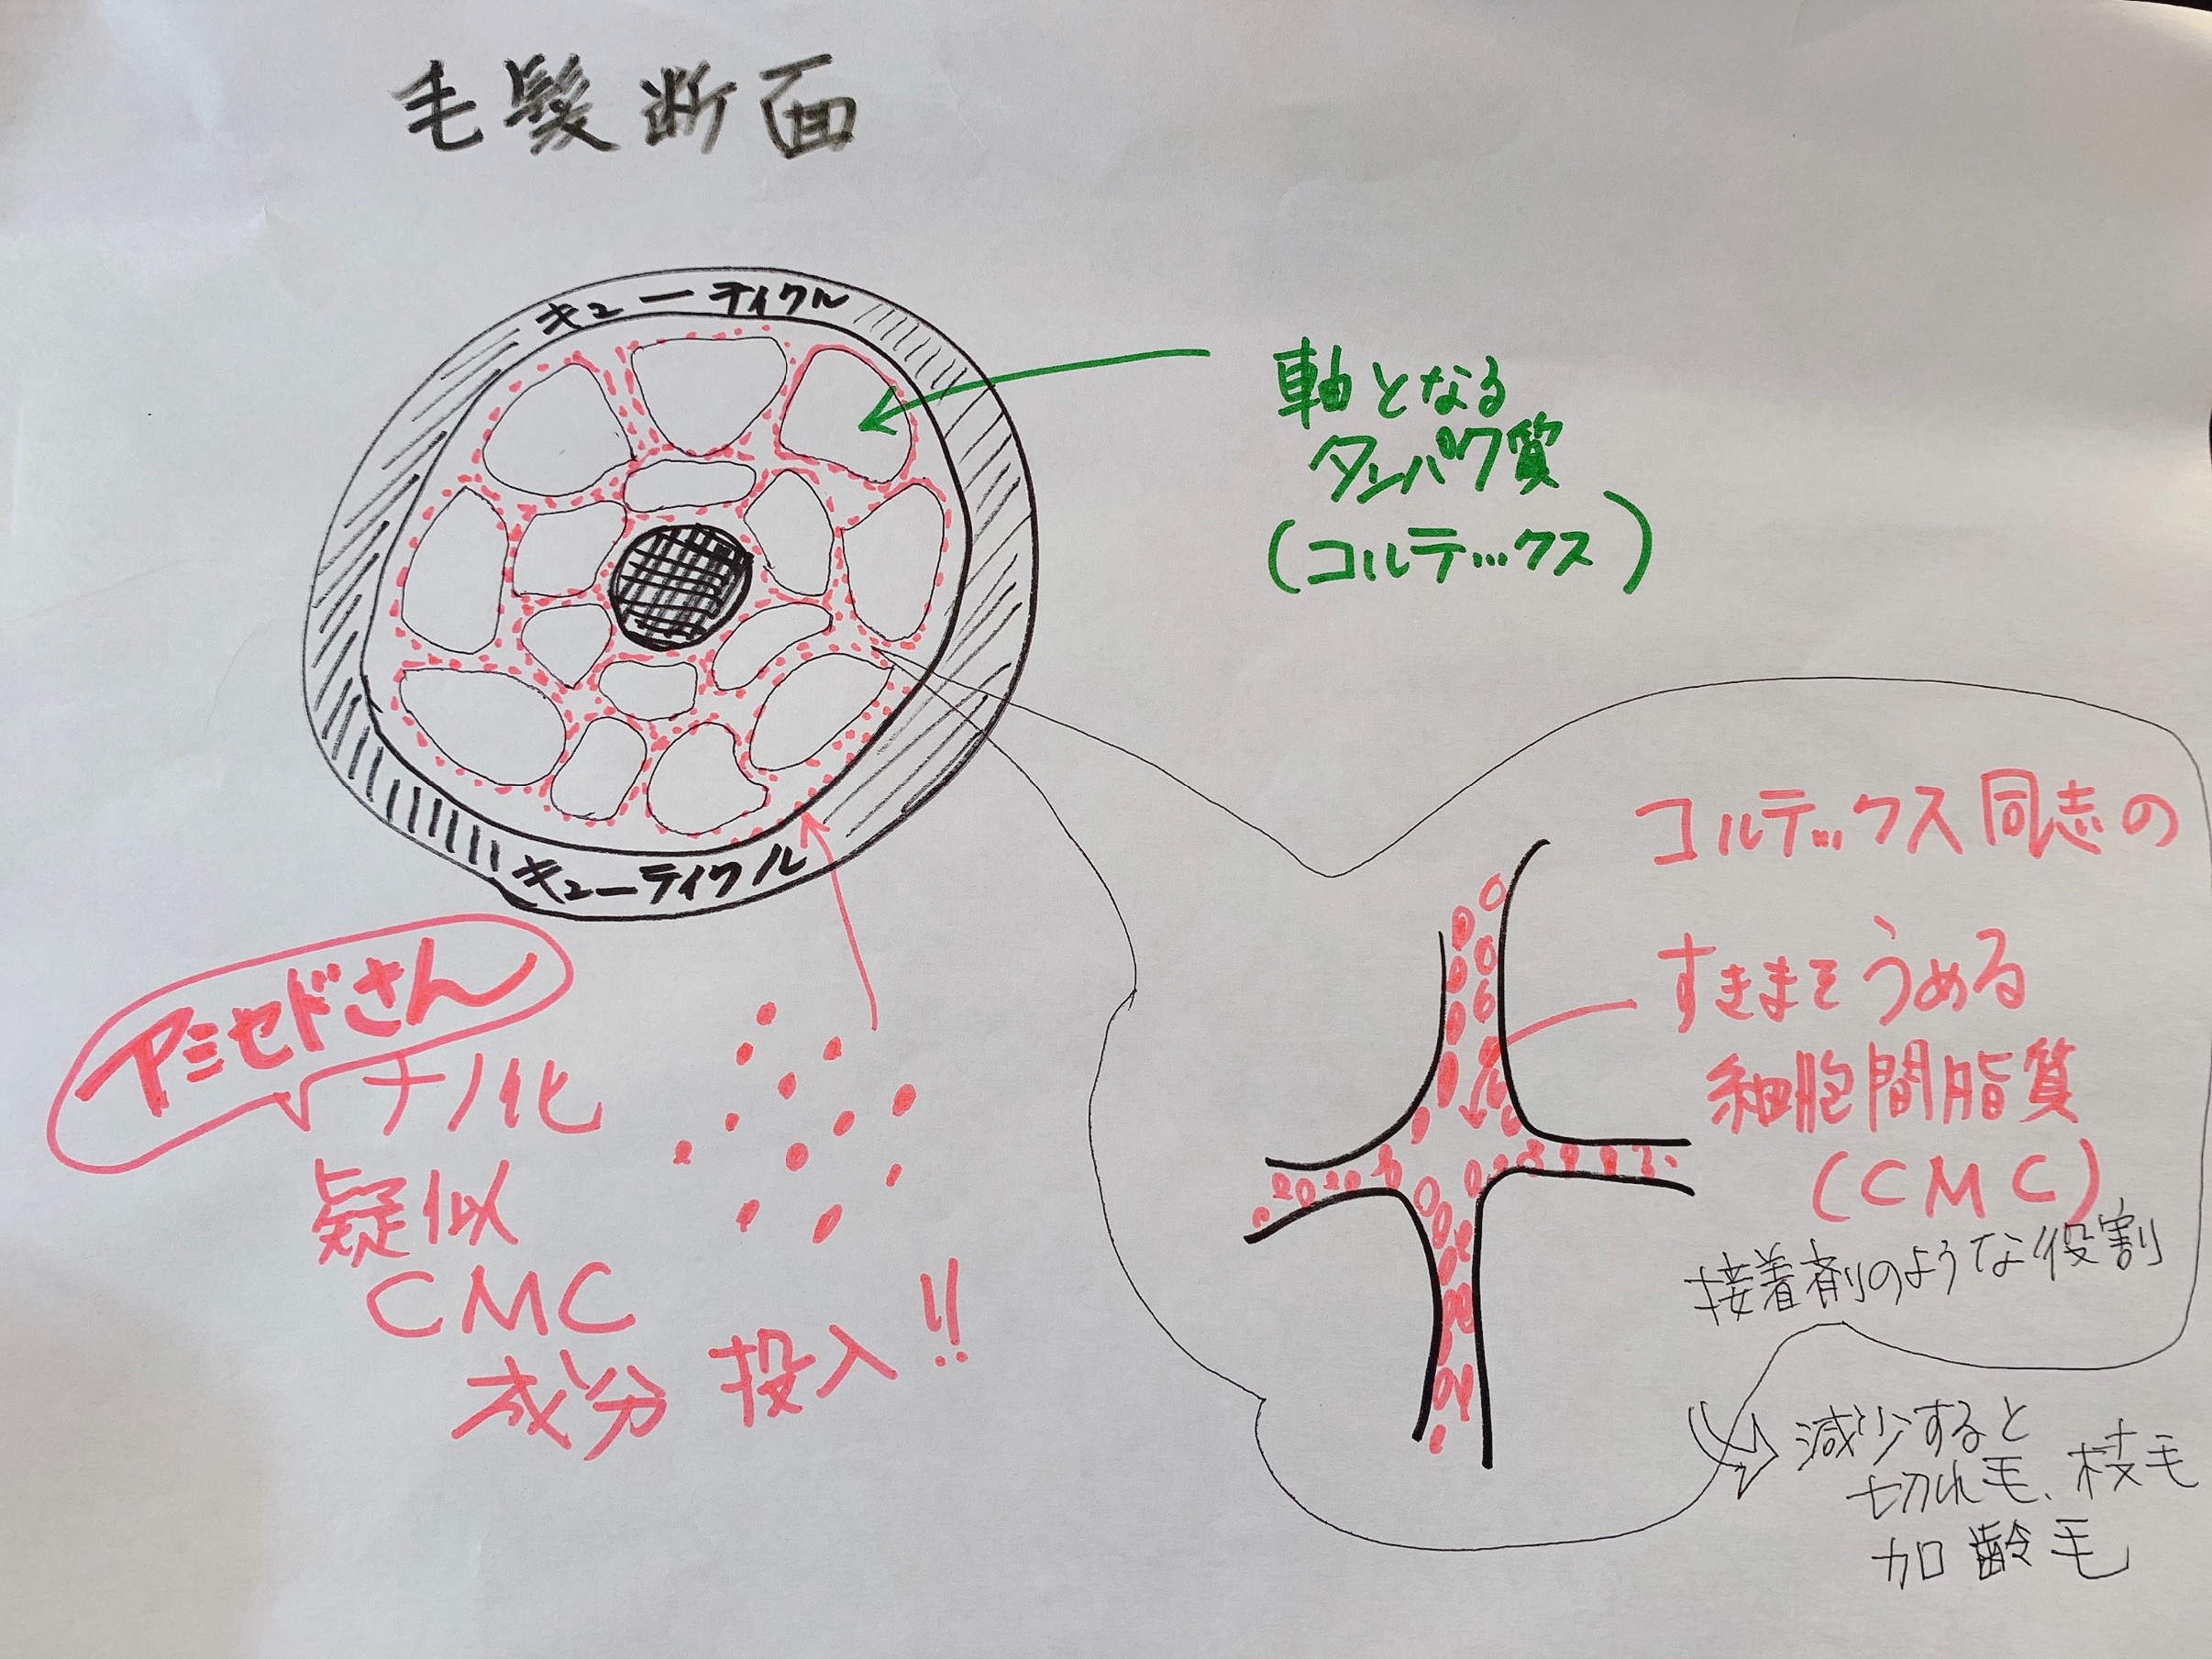 毛髪断面
キューティクル
軸となる
タンパク質
(コルテックス)
キューティクル
アミセドさん
ナノ化
疑似
CMC
成分 投入!!
コルテックス同志の
すきまをうめる
細胞間脂質
(CMC)
接着剤のような役割
減少すると
切れ毛、枝毛
加齢毛